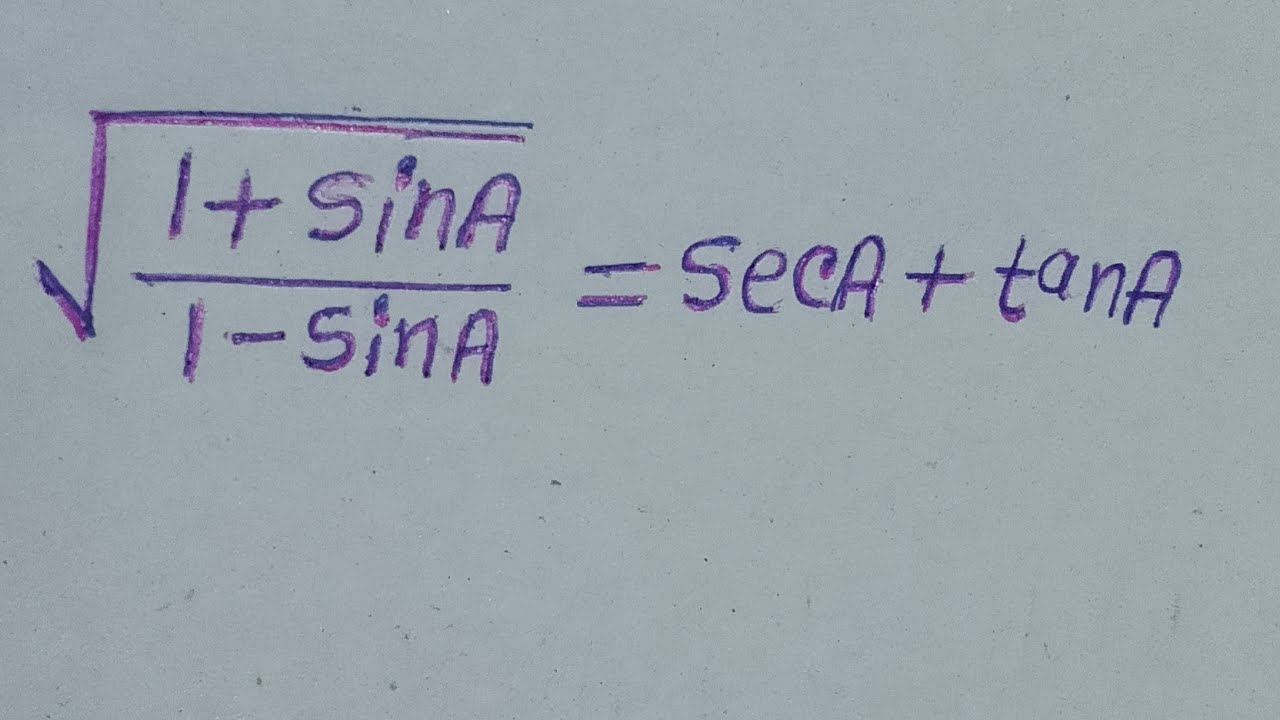 √(1 + sinA / 1 - sinA) = secA + tanA